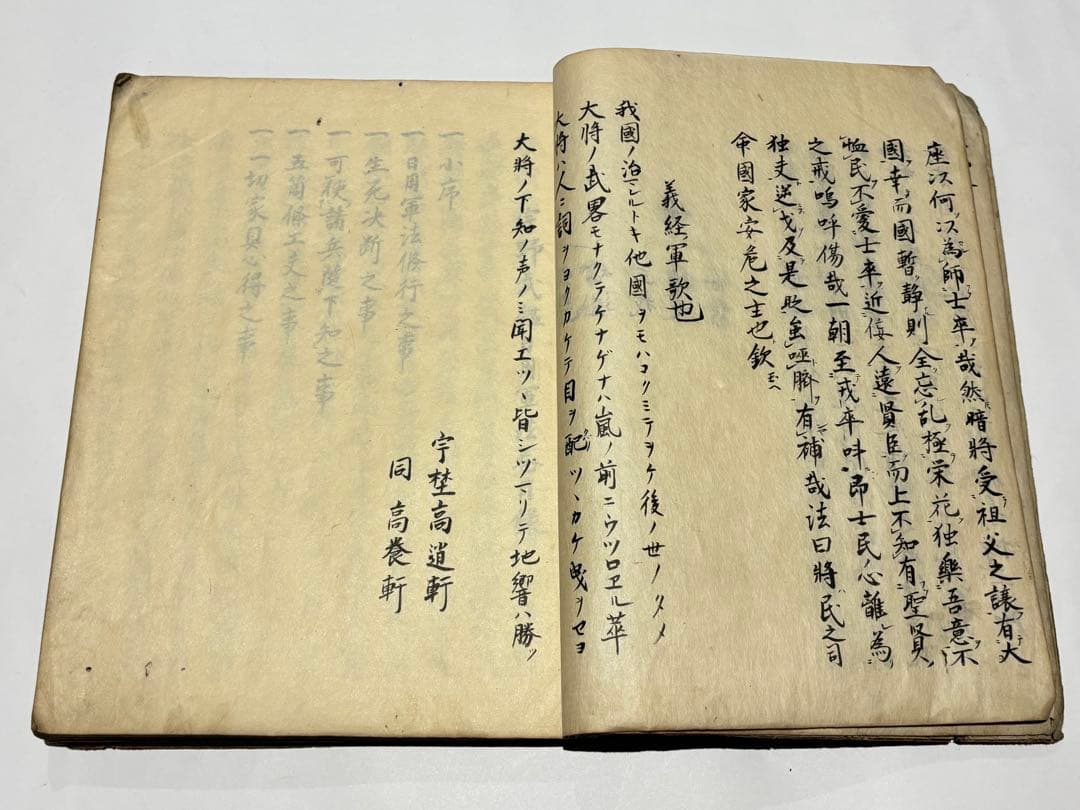 座以何以為師士卒哉然暗將受祖父之譲有大
國幸而國暫静則全忘乱極栄花独樂吾意不
恤民不愛士卒近倭人遠賢臣而上不知有聖賢
之戒嗚呼傷哉一朝至戎卒時即士民心離為
独夫逆戈及是敗虽噬臍有補哉法曰將民之司
命國家安危之主也欤
義経軍歌也
我國ノ治マレルトキ他國ヲモハコクミテヲケ後ノ世ノタメ
大将ノ武畧モナクテケナケナハ嵐ノ前ニウツロヱル華
大将ハ人ニ詞ヲヨクカケテ目ヲ配ツヽカケ曳ヲセヨ
大将ノ下知ノ声ノミ聞エツヽ皆シツマリテ地響ハ勝ツ
宇埜高逍軒
同 高養軒
一小序
一日用軍法修行之事
一生死决断之事
一可使諸兵随下知之事
一五箇條工夫之事
一一切家具心得之事